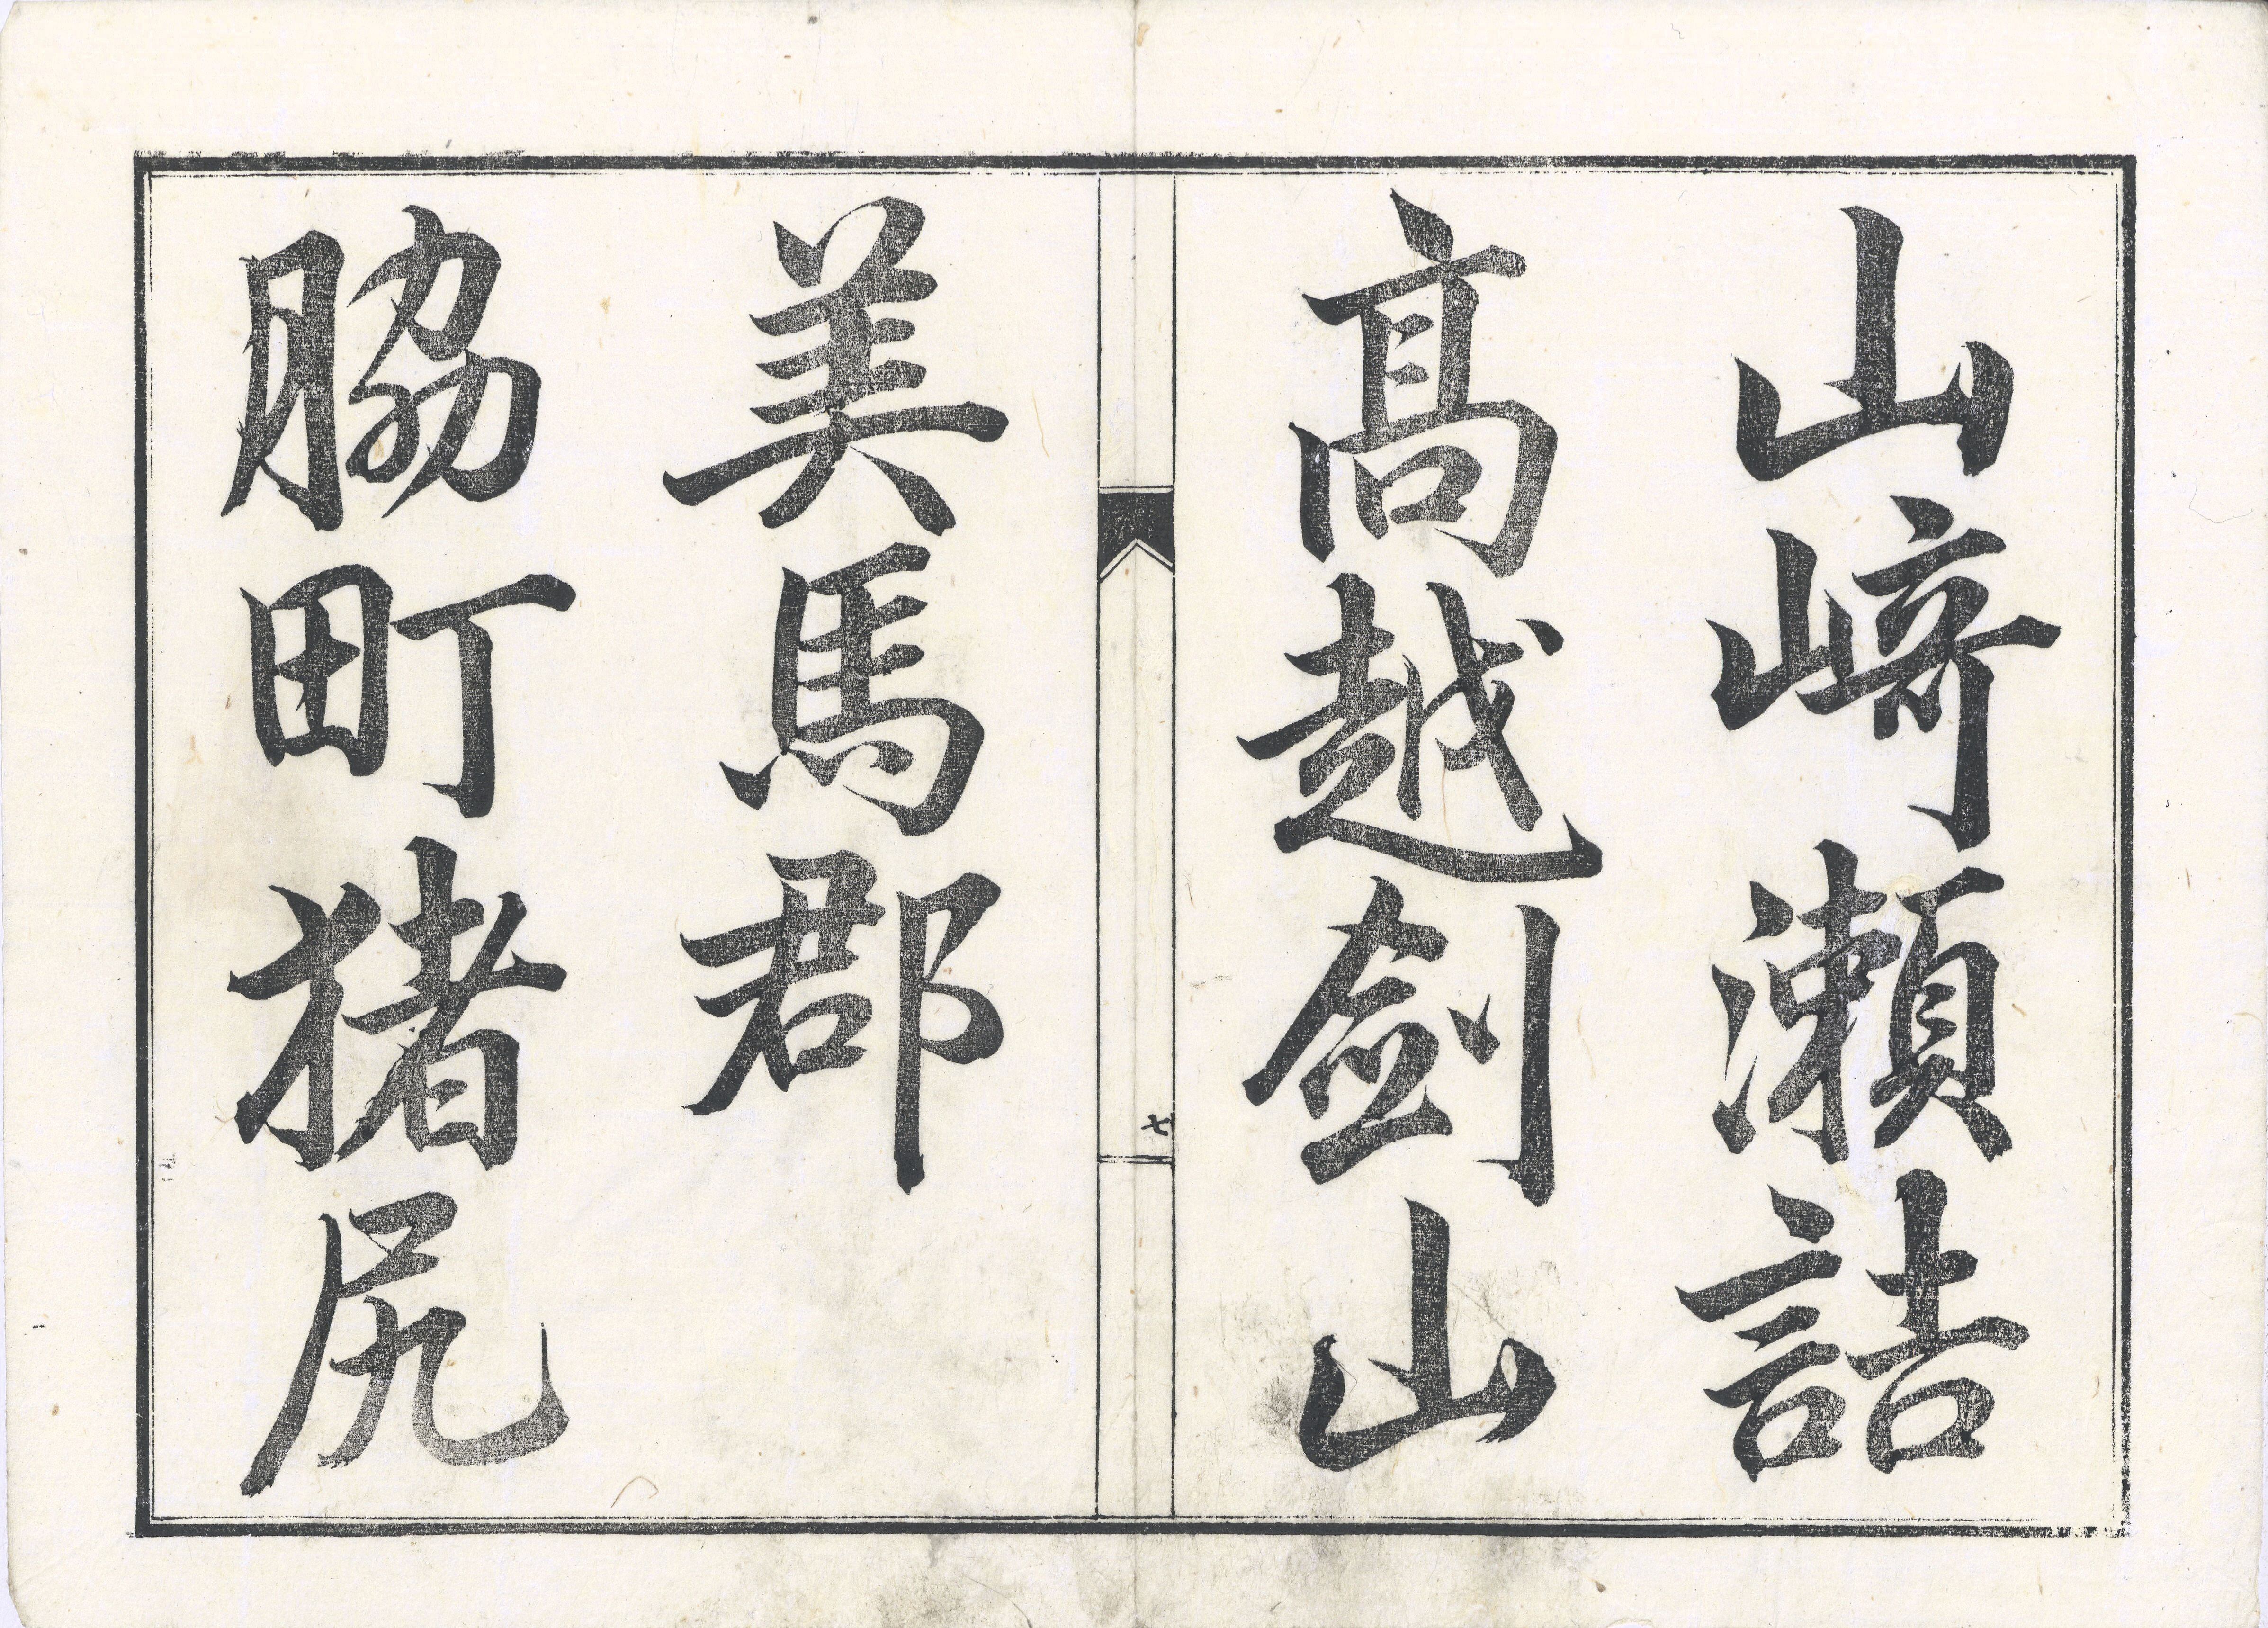 山﨑瀬詰
髙越剣山
七
美馬郡
脇町猪尻